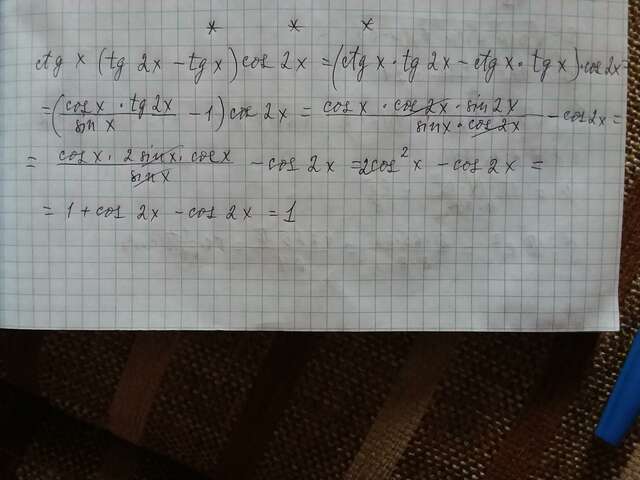 * * *
ctg x (tg 2x - tg x) cos 2x = (ctg x · tg 2x - ctg x · tg x) · cos 2x =
= (cos x · tg 2x / sin x - 1) cos 2x = cos x · cos 2x · sin 2x / sin x · cos 2x - cos 2x =
= cos x · 2 sin x · cos x / sin x - cos 2x = 2cos² x - cos 2x =
= 1 + cos 2x - cos 2x = 1